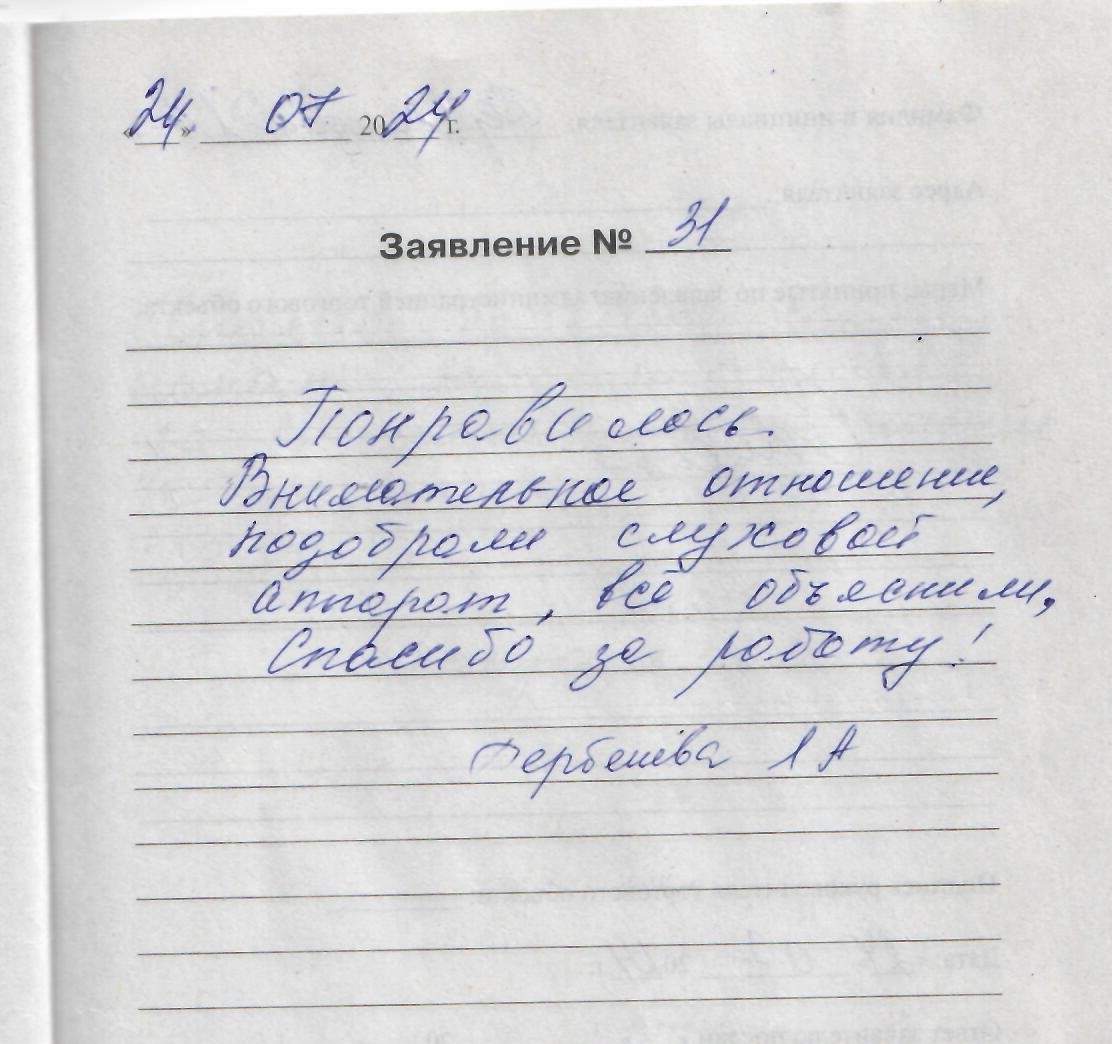 «24» 07 2024 г.
Заявление № 31
Понравилось.
Внимательное отношение,
подобрали слуховой
аппарат, всё объяснили,
Спасибо за работу!
Дербенёва Л А